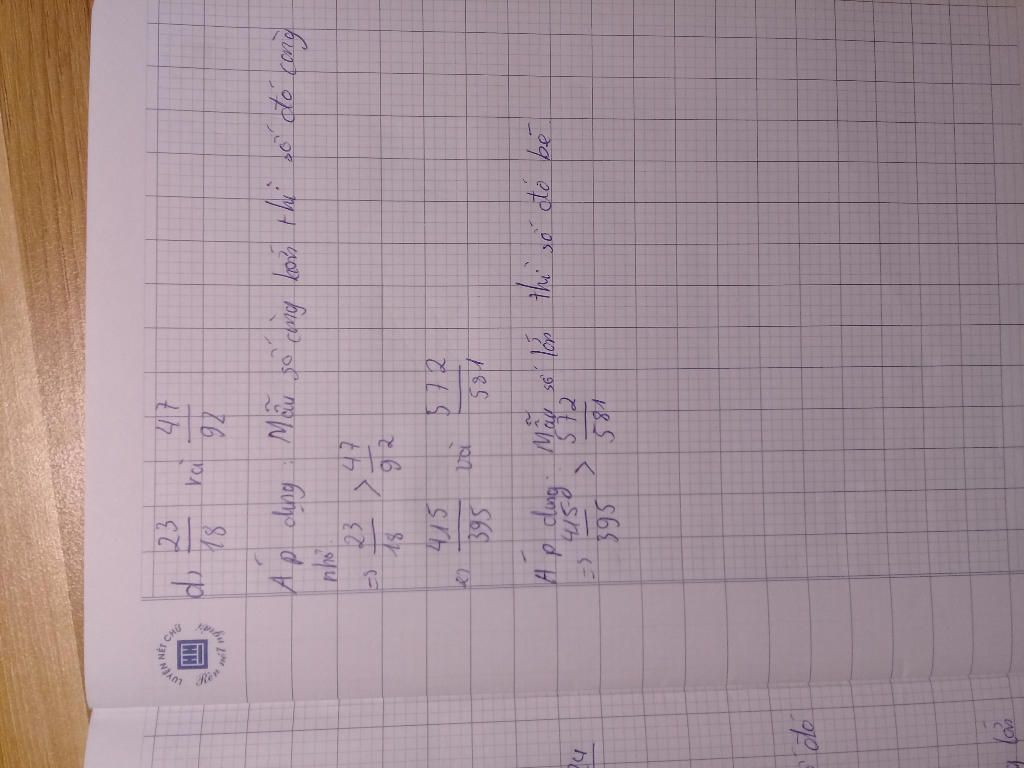 LUYỆN NÉT CHỮ
Rèn nết người
d, 23/18 và 47/92
Áp dụng: Mẫu số càng lớn thì số đó càng
nhỏ.
=> 23/18 > 47/92
e) 415/395 và 572/581
Áp dụng: Mẫu số lớn thì số đó bé
=> 415/395 > 572/581
đó
lớn